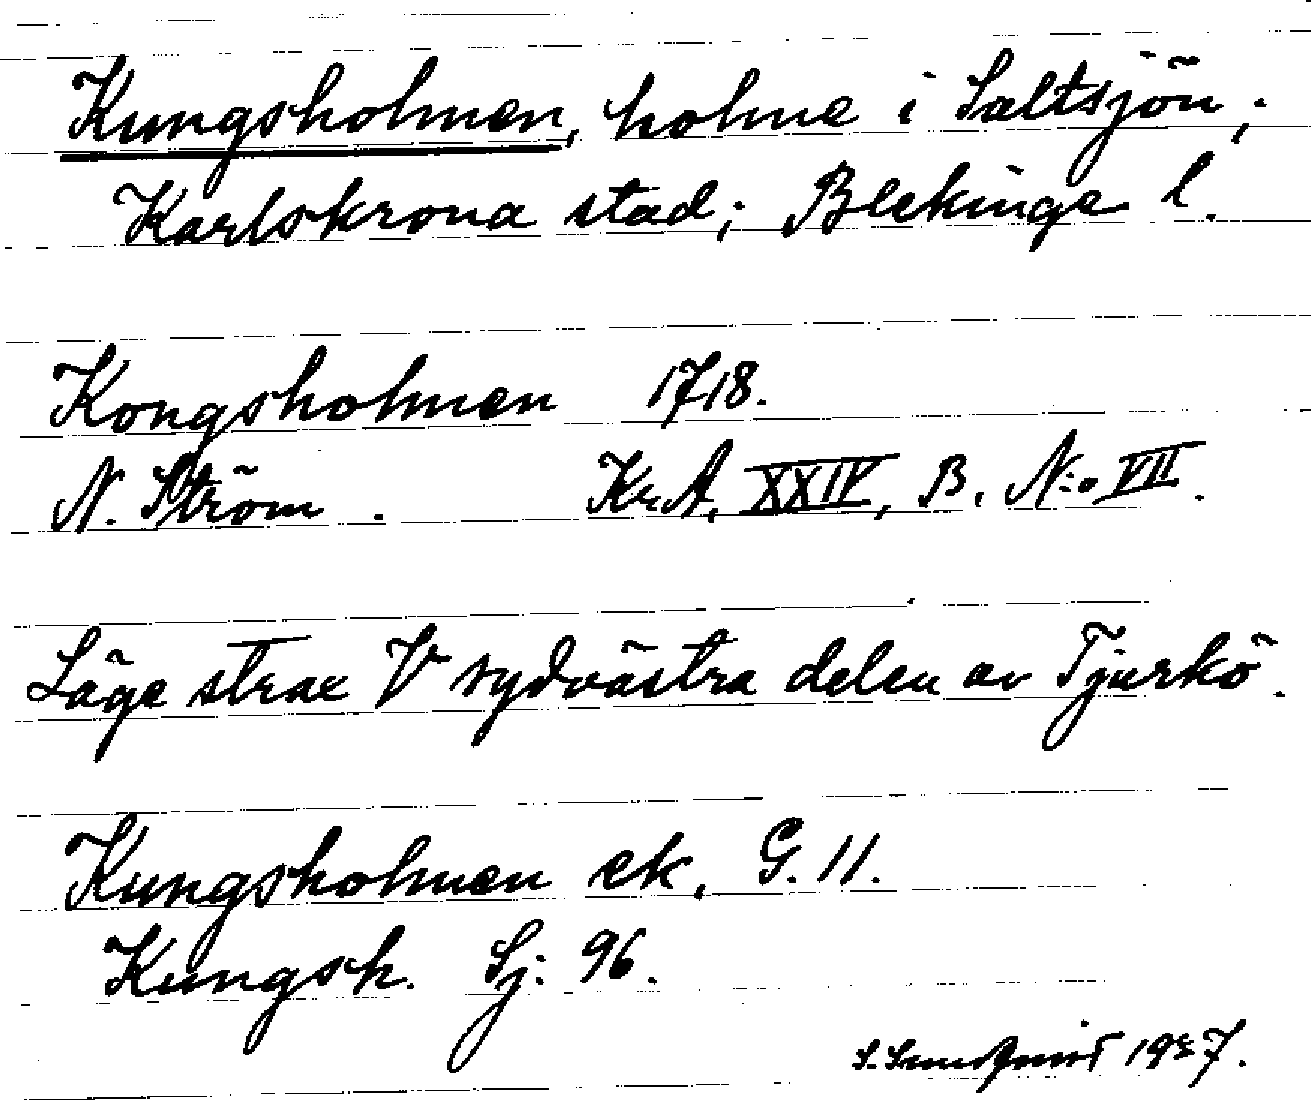 Kungsholmen, holme i Saltsjön;
Karlskrona stad; Blekinge l.
Kongsholmen 1718.
N. Ström. Kr.A, XXIV, B. N:o VII.
Läge strax V sydvästra delen av Tjurkö.
Kungsholmen ek. G. 11.
Kungsh. Sj: 96.
S. Sundqvist